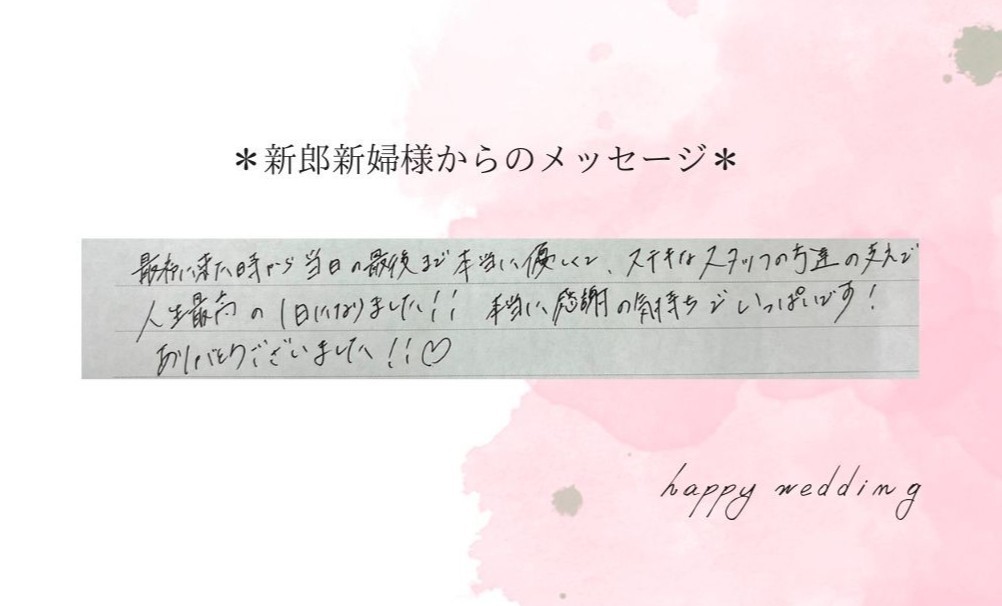 ＊新郎新婦様からのメッセージ＊
最初に来た時から当日の最後まで本当に優しくて、ステキなスタッフの方達の支えで
人生最高の1日になりました!! 本当に感謝の気持ちでいっぱいです!
ありがとうございました!!♡
happy wedding